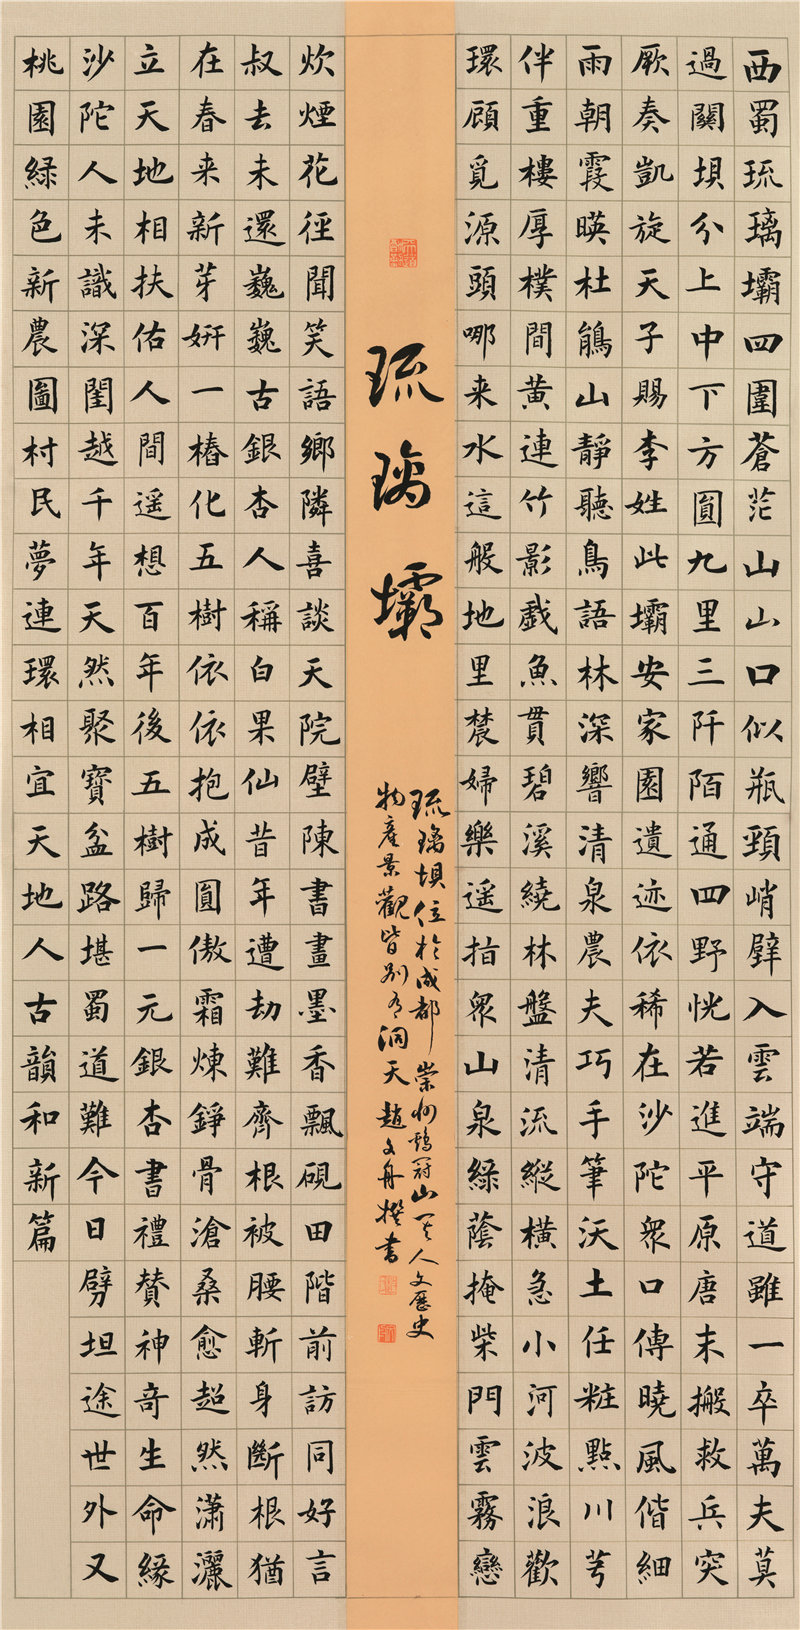 西蜀琉璃壩四圍蒼茫山山口似瓶頸峭壁入雲端守道雖一卒萬夫莫
過關垻分上中下方圓九里三阡陌通四野恍若進平原唐末搬救兵突
厥奏凱旋天子賜李姓此壩安家園遺迹依稀在沙陀衆口傳曉風偕細
雨朝霞暎杜鵑山靜聽鳥語林深響清泉農夫巧手筆沃土任粧點川芎
伴重樓厚樸間黃連竹影戲魚貫碧溪繞林盤清流縱橫急小河波浪歡
環顧覓源頭哪来水這般地里農婦樂遥指衆山泉綠蔭掩柴門雲霧戀
琉璃壩
琉璃垻位於成都崇州鷄冠山其人文歷史
物産景觀皆别有洞天趙文舟撰書
炊煙花徑聞笑語鄉隣喜談天院壁陳書畫墨香飄硯田階前訪同好言
叔去未還巍巍古銀杏人稱白果仙昔年遭劫難齊根被腰斬身斷根猶
在春来新芽妍一樁化五樹依依抱成圓傲霜煉錚骨滄桑愈超然瀟灑
立天地相扶佑人間遥想百年後五樹歸一元銀杏書禮贊神奇生命緣
沙陀人未識深閨越千年天然聚寶盆路堪蜀道難今日劈坦途世外又
桃園綠色新農圖村民夢連環相宜天地人古韻和新篇